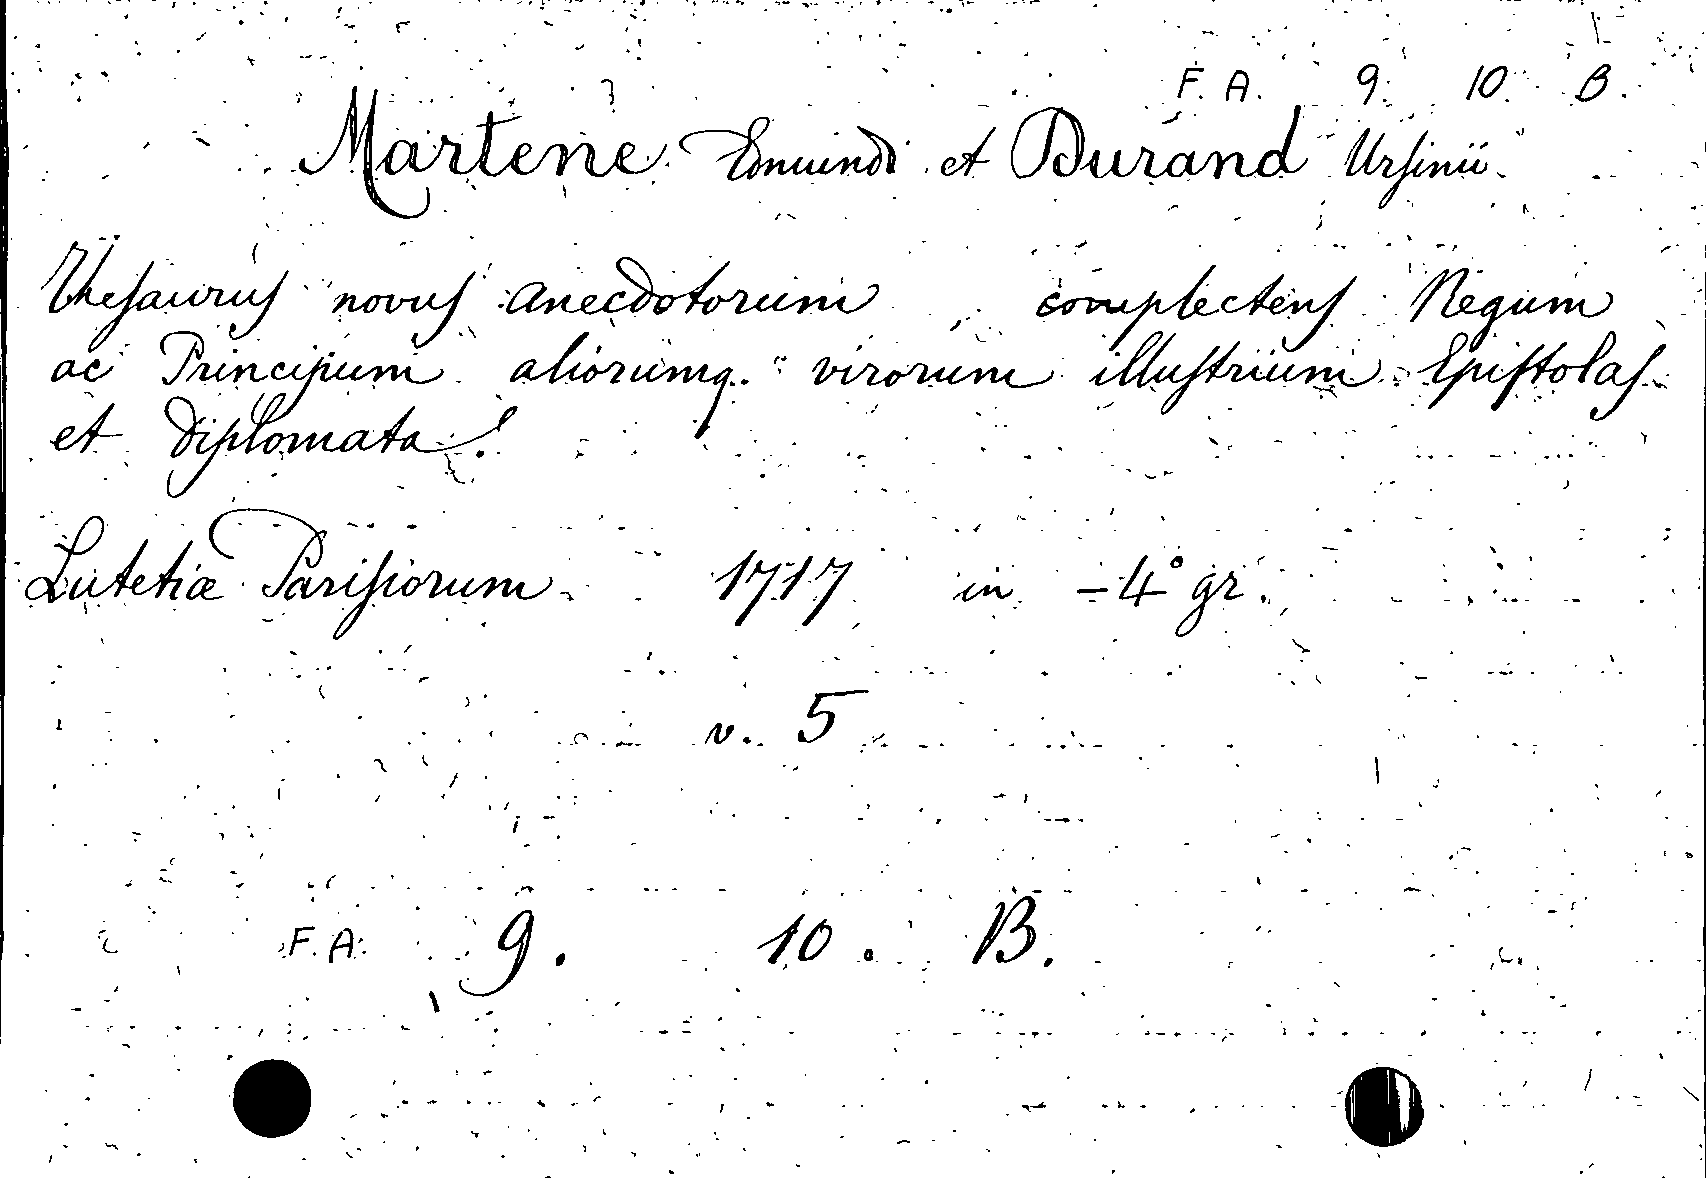 F. A. 9. 10. B.
Martene Edmundi et Durand Ursinii
Thesaurus novus anecdotorum complectens Regum
ac Principum aliorumq. virorum illustrium Epistolas
et diplomata.
Lutetiæ Parisiorum 1717 in -4° gr.
v. 5
F. A. 9. 10. B.